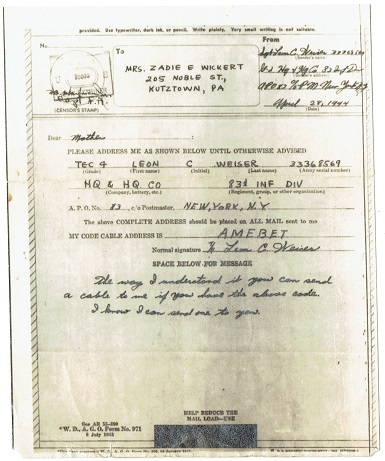 provided. Use typewriter, dark ink, or pencil. Write plainly. Very small writing is not suitable.
No.
To
From
MRS. ZADIE E WICKERT
205 NOBLE ST.,
KUTZTOWN, PA
(CENSOR'S STAMP)
Leon C. Weiser 33368569
(Sender's name)
Hq & Hq Co 83 Inf Div
(Sender's address)
New York N.Y.
April 29, 1944
(Date)
Dear Mother
PLEASE ADDRESS ME AS SHOWN BELOW UNTIL OTHERWISE ADVISED
TEC 4 LEON C WEISER 33368569
(Grade) (First name) (Initial) (Last name) (Army serial number)
HQ & HQ. CO 83d INF DIV
(Company, battery, etc.) (Regiment, group, or other organization)
A. P. O. No. 83, c/o Postmaster, NEW, YORK, N.Y
The above COMPLETE ADDRESS should be placed on ALL MAIL sent to me
MY CODE CABLE ADDRESS IS AMEBET
Normal signature Leon C Weiser
SPACE BELOW FOR MESSAGE
The way I understand it you can send
a cable to me if you have the above code.
I know I can send one to you.
HELP REDUCE THE
MAIL LOAD—USE
See AR
W. D., A. G. O. Form No. 971